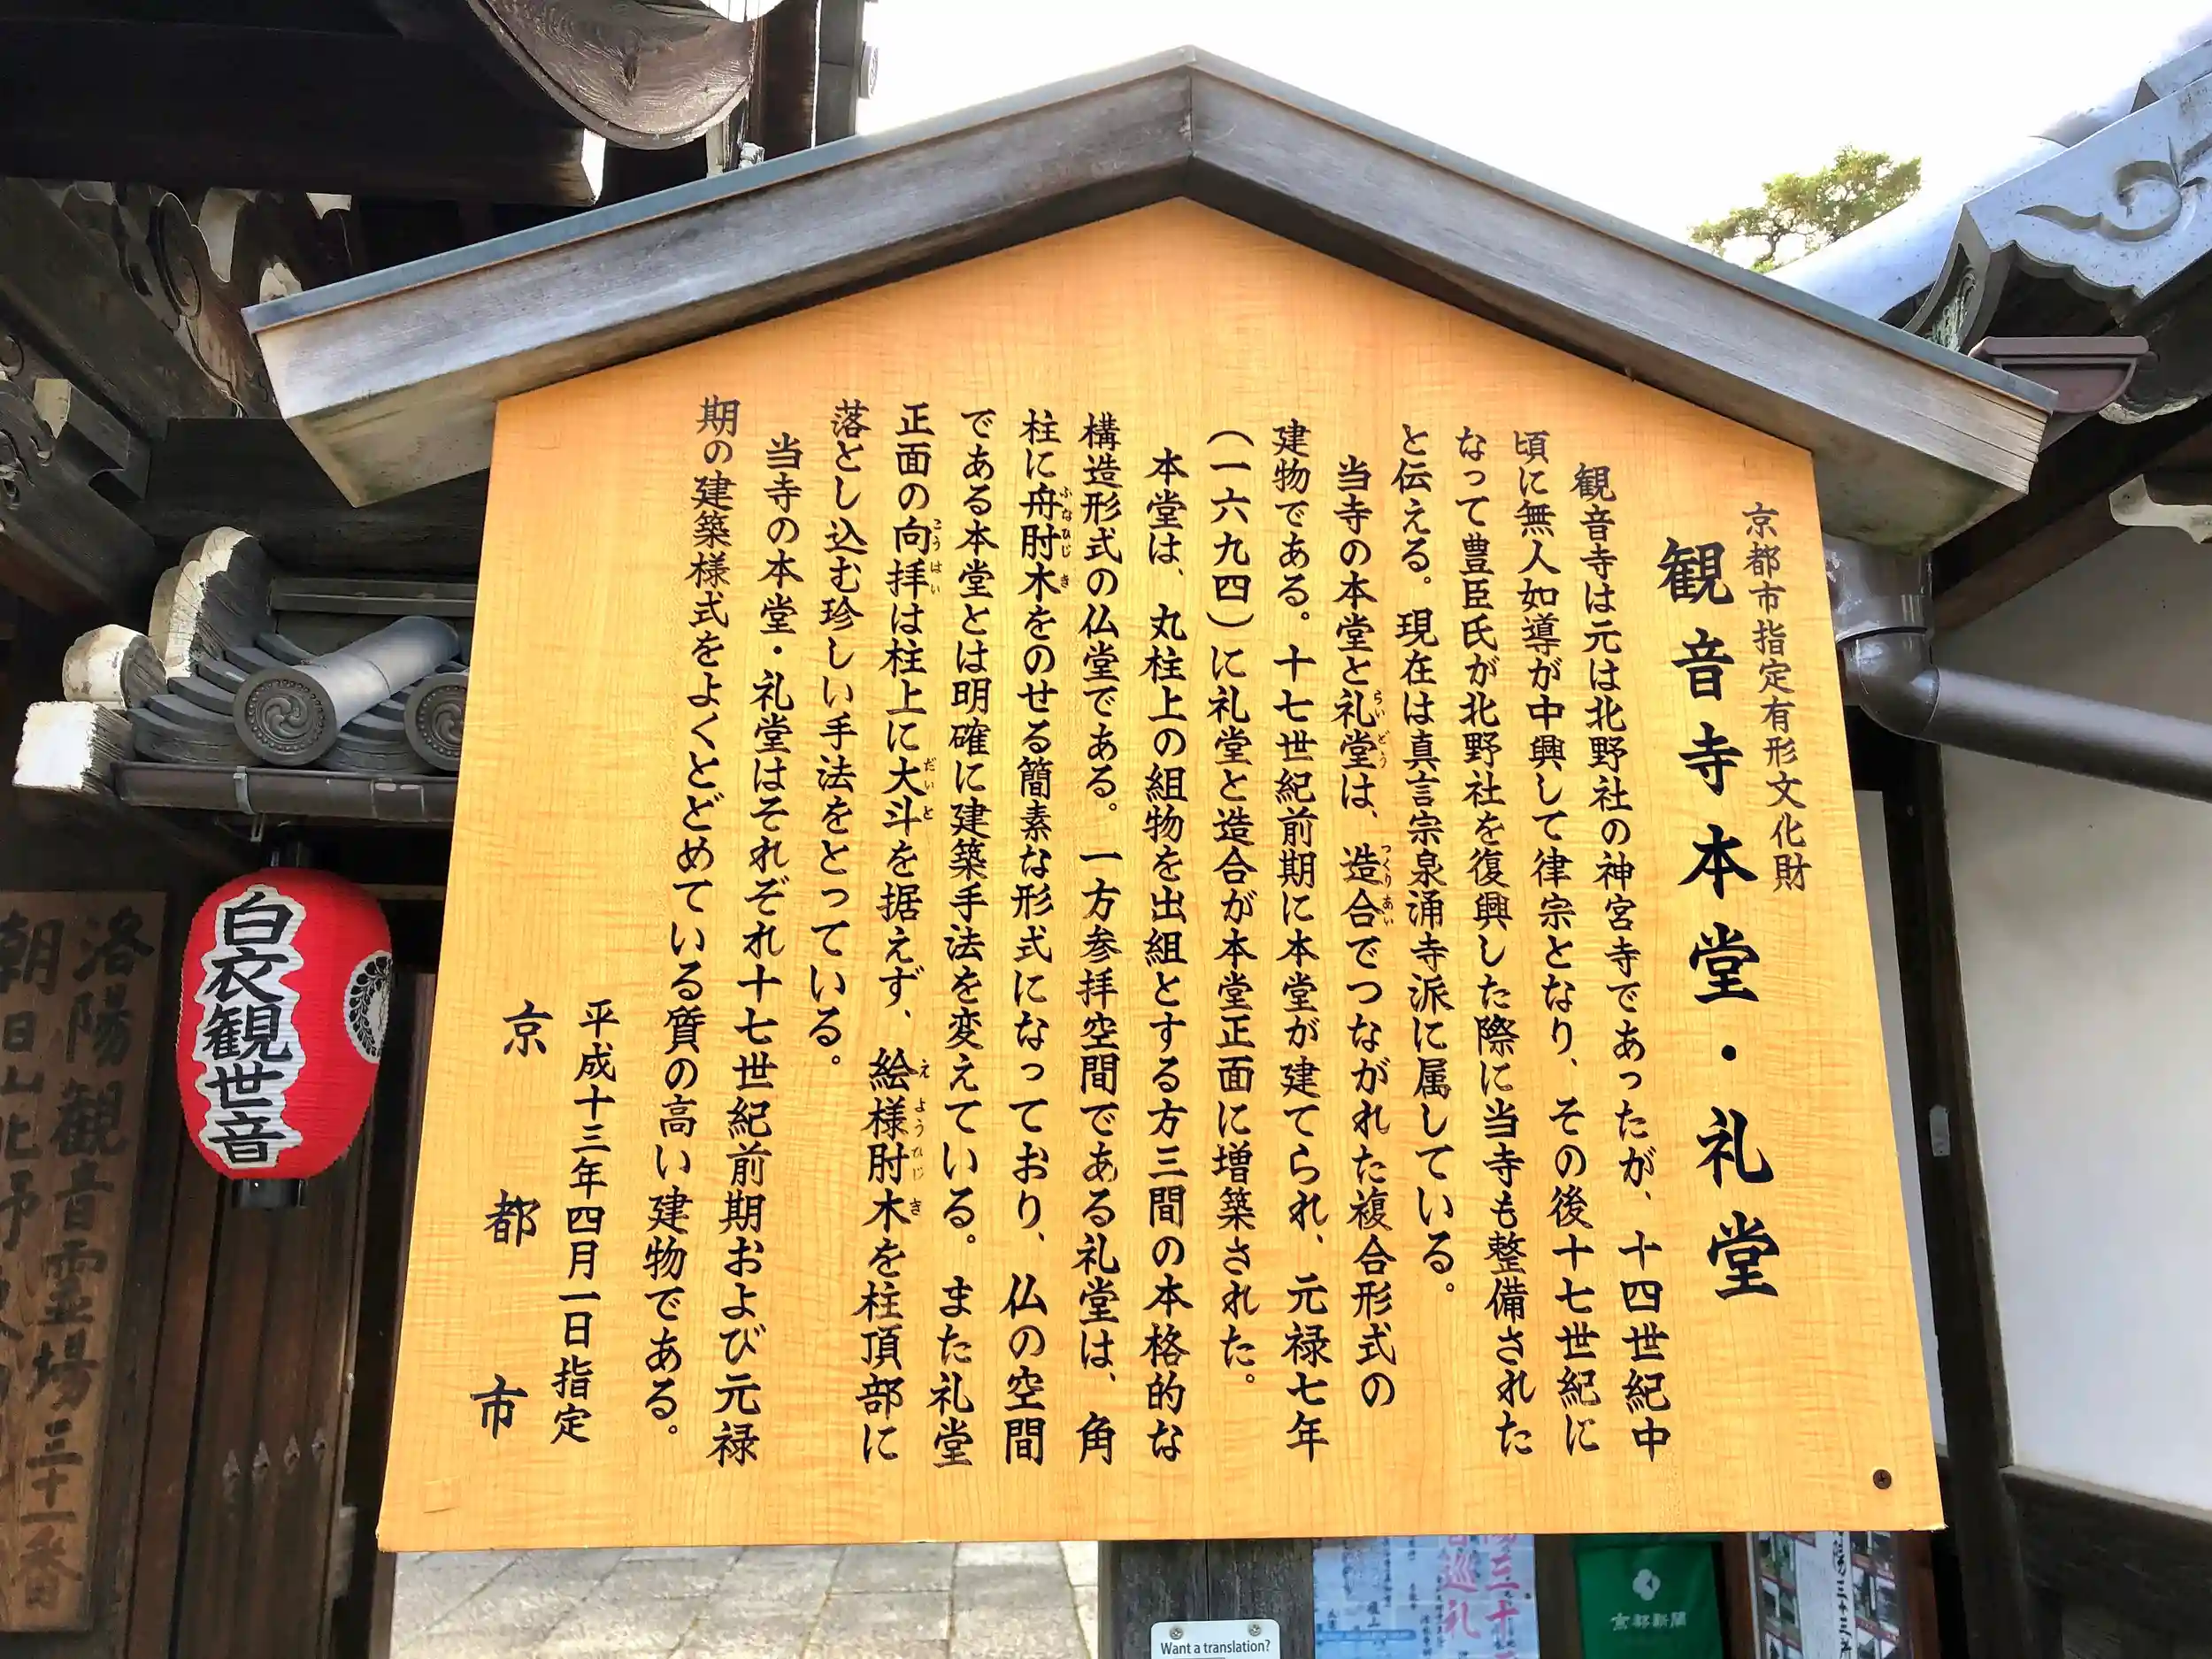 京都市指定有形文化財
観音寺本堂・礼堂
観音寺は元は北野社の神宮寺であったが、十四世紀中
頃に無人如導が中興して律宗となり、その後十七世紀に
なって豊臣氏が北野社を復興した際に当寺も整備された
と伝える。現在は真言宗泉涌寺派に属している。
当寺の本堂と礼堂は、造合でつながれた複合形式の
らいどう つくりあい
建物である。十七世紀前期に本堂が建てられ、元禄七年
(一六九四)に礼堂と造合が本堂正面に増築された。
本堂は、丸柱上の組物を出組とする方三間の本格的な
構造形式の仏堂である。一方参拝空間である礼堂は、角
柱に舟肘木をのせる簡素な形式になっており、仏の空間
ふなひじき
である本堂とは明確に建築手法を変えている。また礼堂
正面の向拝は柱上に大斗を据えず、絵様肘木を柱頂部に
こうはい だいと えようひじき
落とし込む珍しい手法をとっている。
当寺の本堂・礼堂はそれぞれ十七世紀前期および元禄
期の建築様式をよくとどめている質の高い建物である。
平成十三年四月一日指定
京都市
白衣観世音
洛陽観音霊場三十一番
朝日山北野
三十
巡礼
京都新聞
Want a translation?